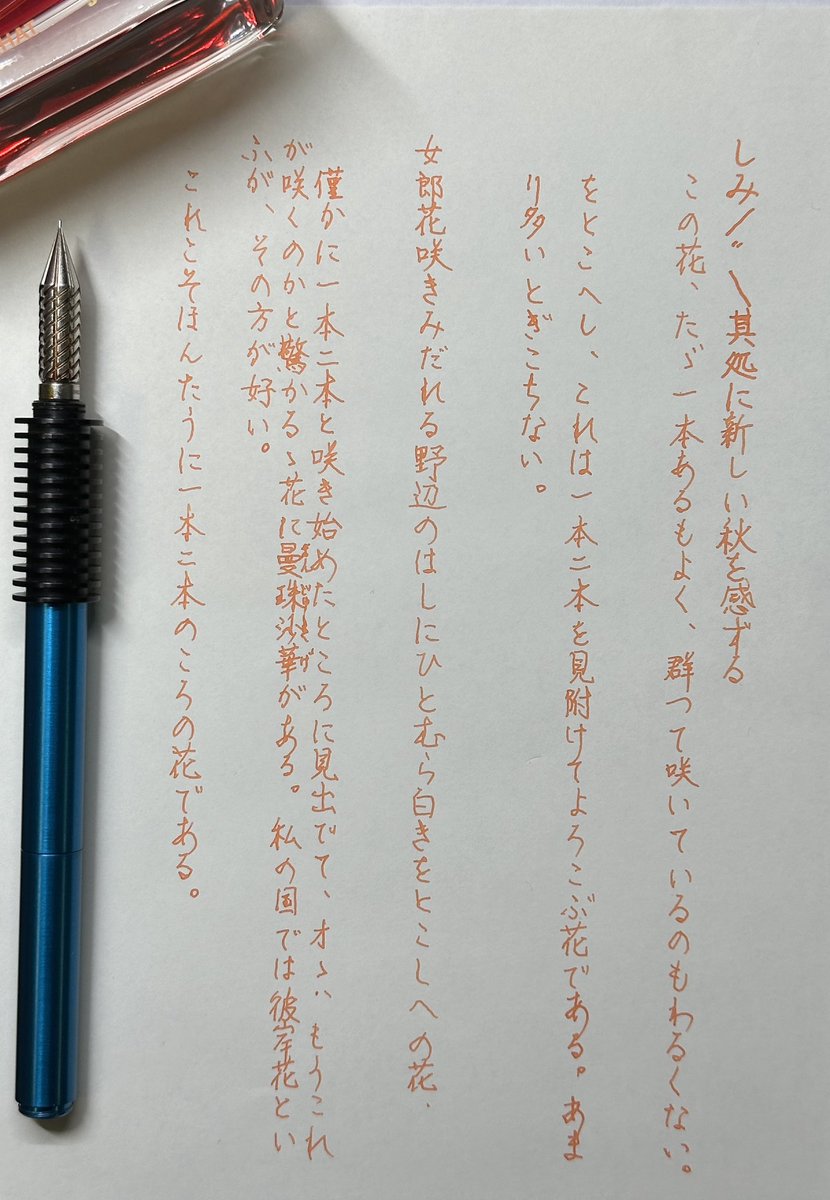 しみ／″＼其処に新しい秋を感ずる
この花、たゞ一本あるもよく、群つて咲いているのもわるくない。
をとこへし、これは一本二本を見附けてよろこぶ花である。あま
り多いとぎこちない。
女郎花咲きみだれる野辺のはしにひとむら白きをとこしへの花、
僅かに一本二本と咲き始めたところに見出でて、オヽ、もうこれ
が咲くのかと驚かるゝ花に曼珠沙華がある。私の国では彼岸花とい
ふが、その方が好い。
これこそほんたうに一本二本のころの花である。